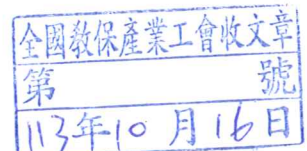 全國教保產業工會收文章
第 號
113年10月16日